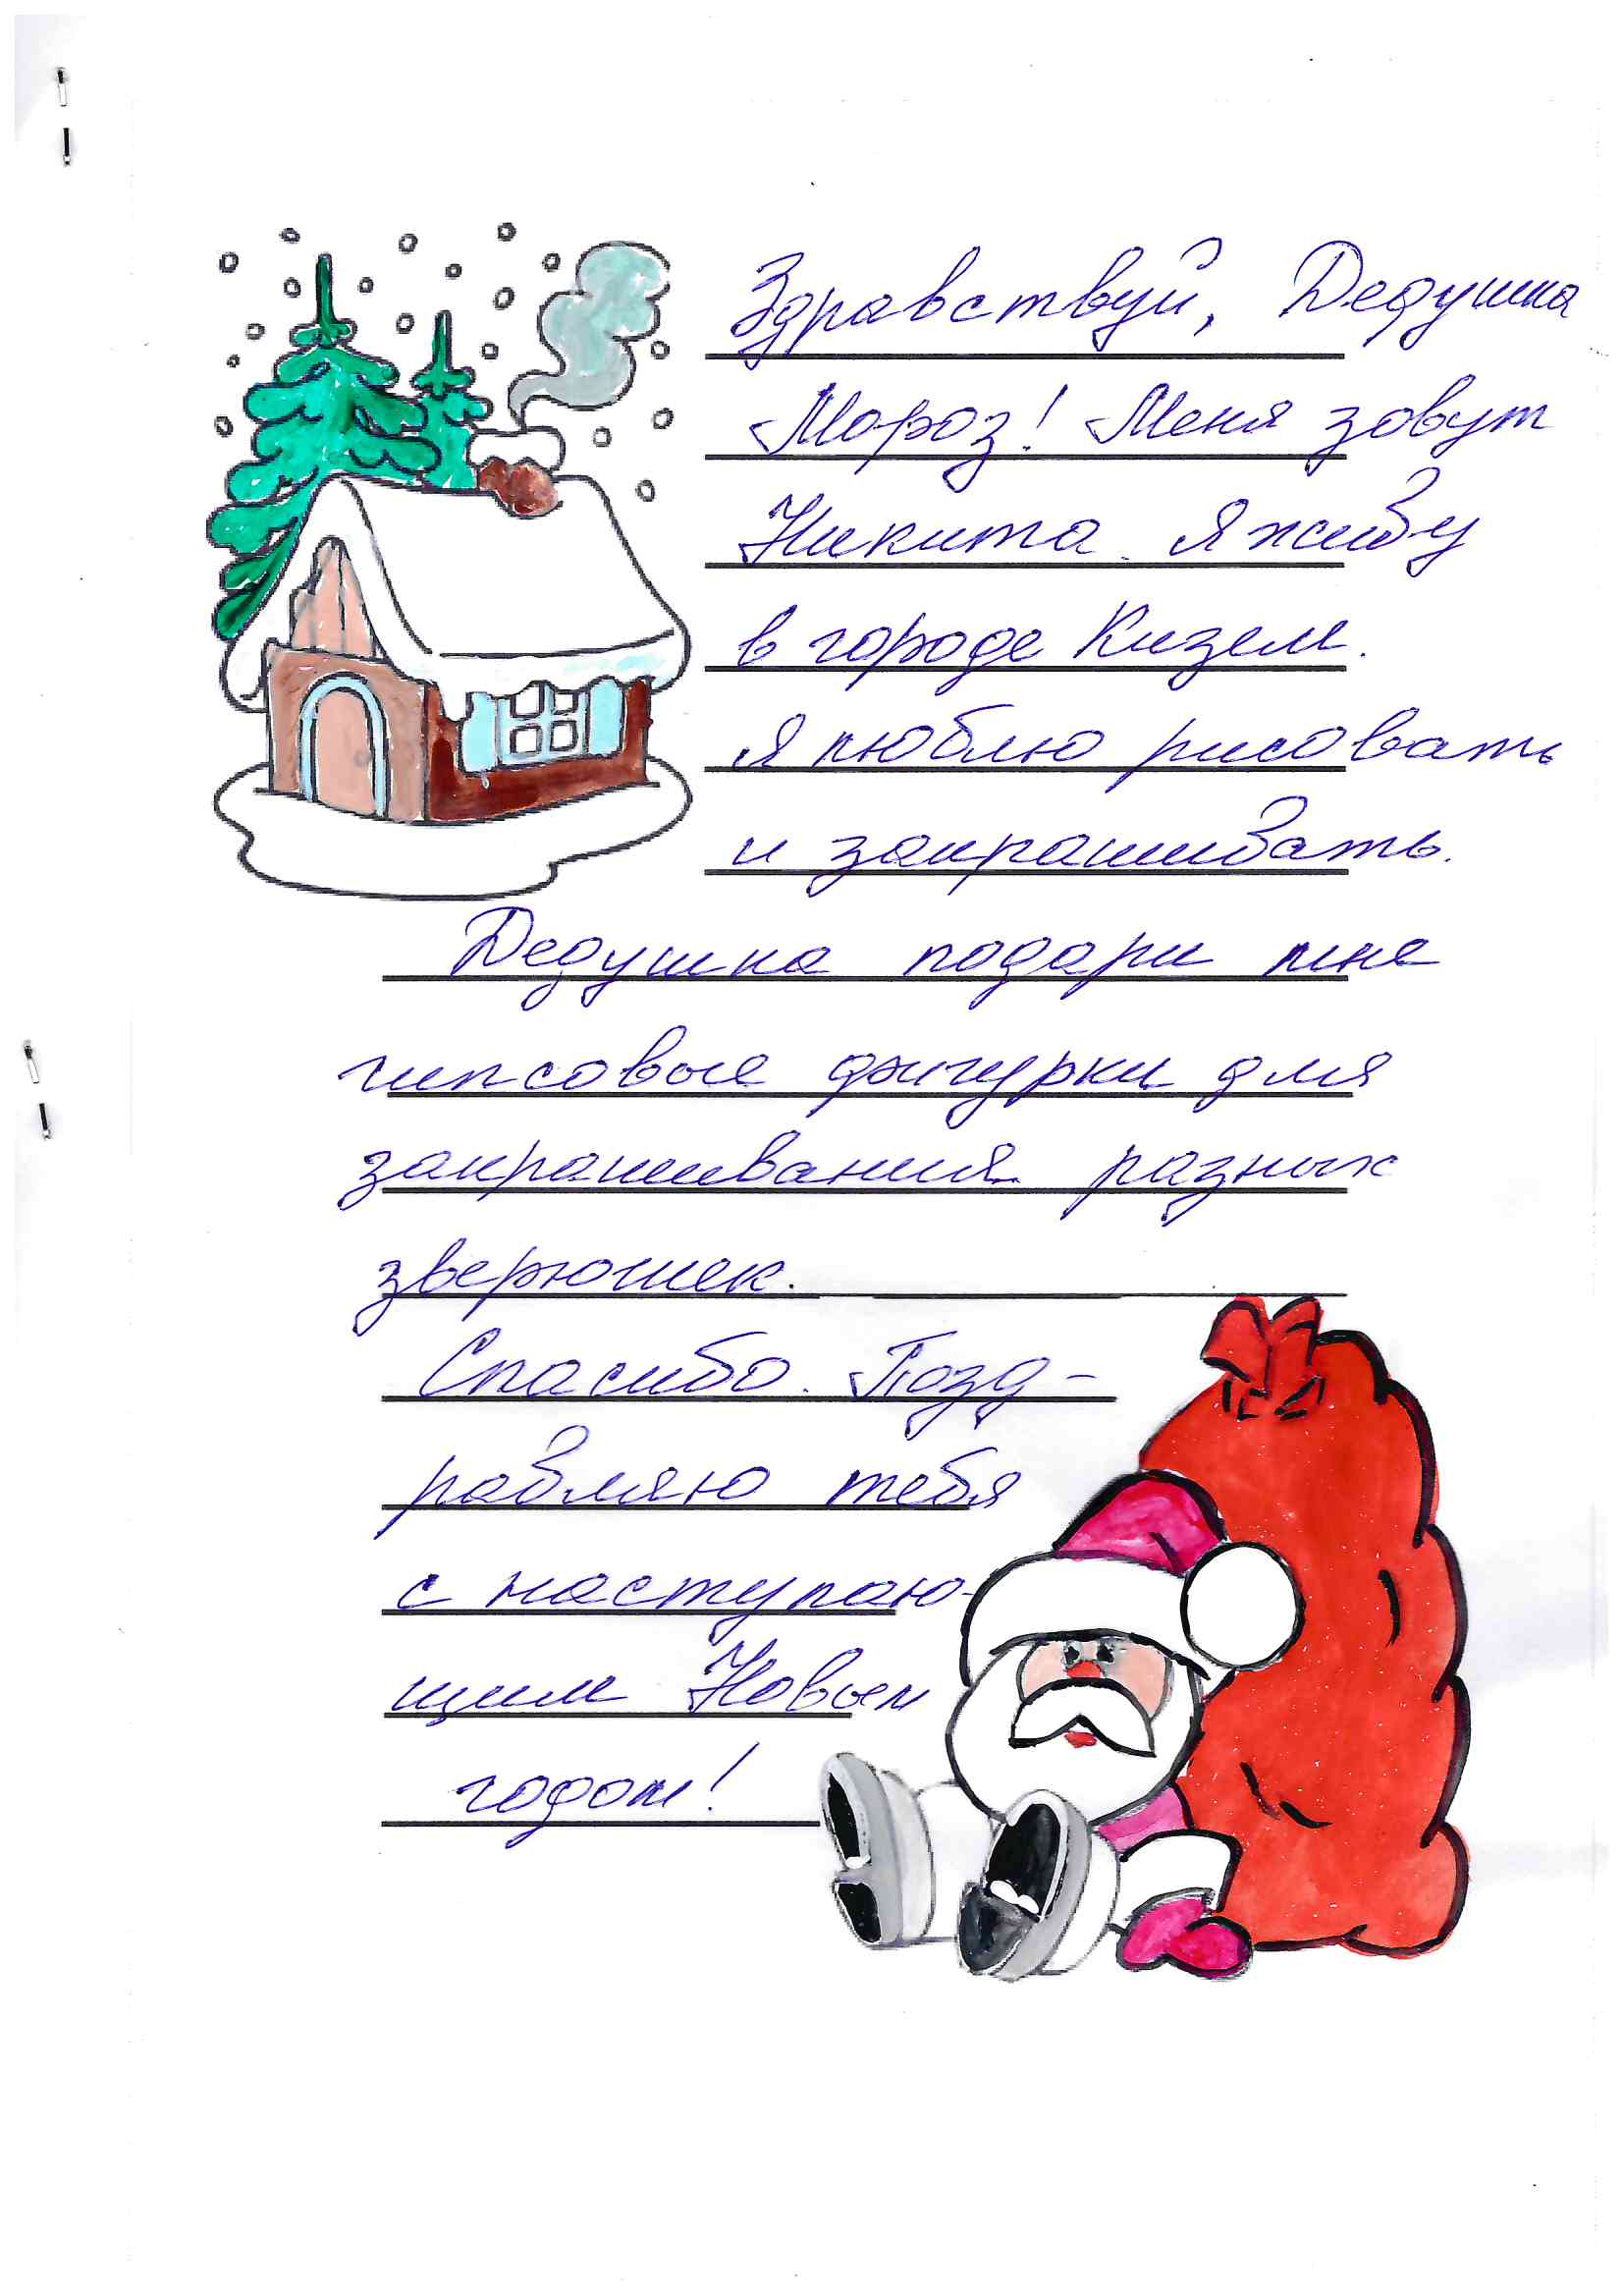 Здравствуй, Дедушка
Мороз! Меня зовут
Никита. Я живу
в городе Кизел.
Я люблю рисовать
и закрашивать.
Дедушка подари мне
гипсовые фигурки для
закрашивания разных
зверюшек.
Спасибо. Позд-
равляю тебя
с наступаю-
щим Новым
годом!